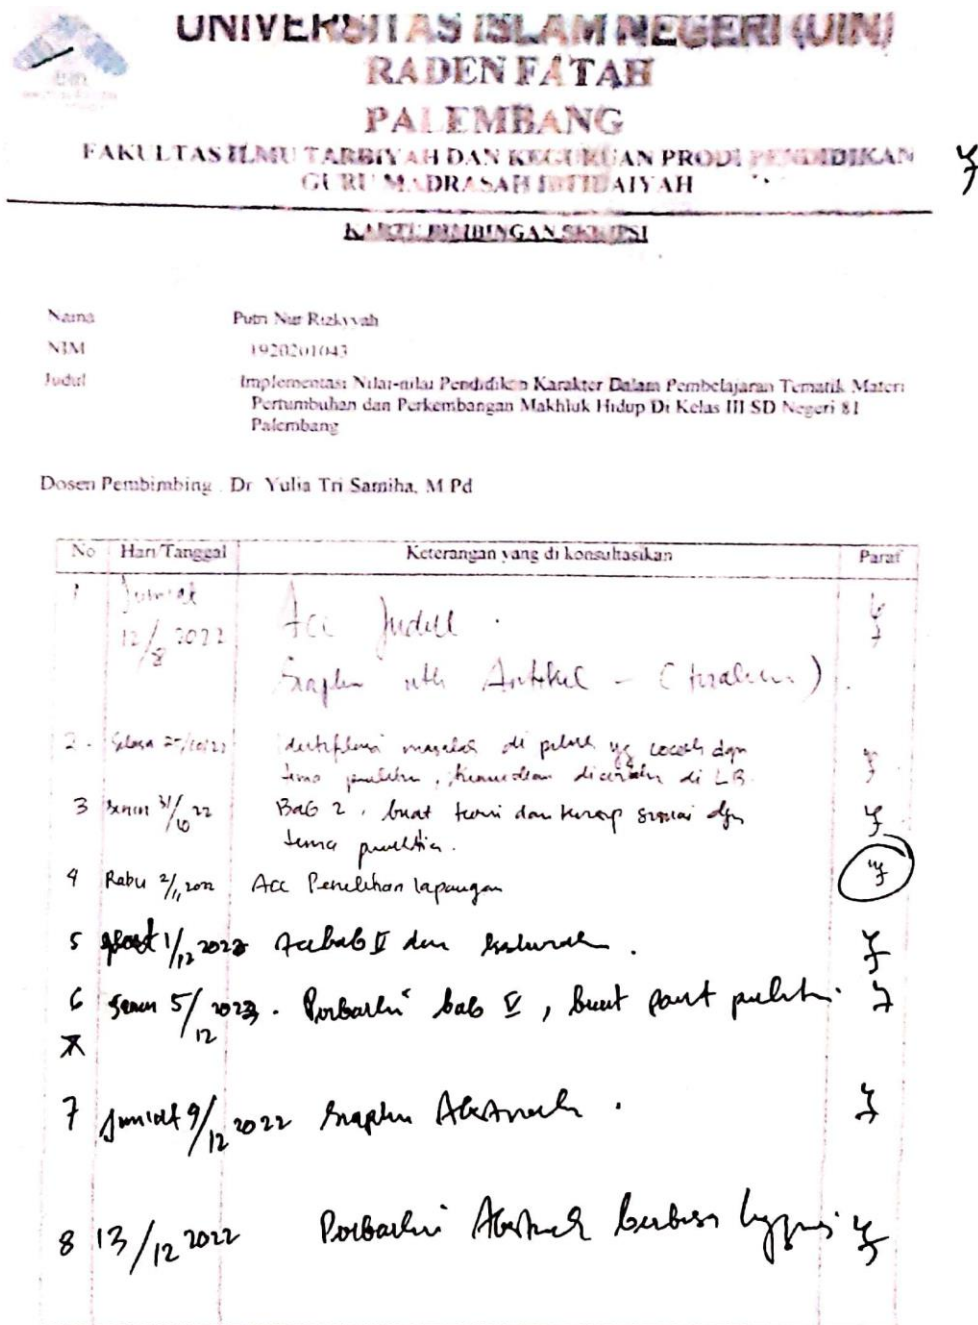 UNIVERSITAS ISLAM NEGERI (UIN)
RADEN FATAH
PALEMBANG
FAKULTAS ILMU TARBIYAH DAN KEGURUAN PRODI PENDIDIKAN
GURU MADRASAH IBTIDAIYAH
KARTU BIMBINGAN SKRIPSI
Nama Putri Nur Rizkyyah
NIM 1920201043
Judul Implementasi Nilai-nilai Pendidikan Karakter Dalam Pembelajaran Tematik Materi
Pertumbuhan dan Perkembangan Makhluk Hidup Di Kelas III SD Negeri 81
Palembang
Dosen Pembimbing : Dr. Yulia Tri Samiha, M.Pd
No Hari/Tanggal Keterangan yang di konsultasikan Paraf
1 Jum'at Acc Judul .
12/8 2022
Siapkan utk Artikel -
2. Selasa masalah di yg cocok dgn
tema , kemudian di LB
3 Senin 31/10 22 Bab 2 , buat teori dan sesuai dgn
tema penelitian.
4 Rabu 2/11 2022 Acc Penelitian lapangan
5 1/12 2022 Acc bab IV dan .
6 Senin 5/12 2022 . Perbaiki bab V , buat
7 Jum'at 9/12 2022 Siapkan Abstrak .
8 13/12 2022 Perbaiki Abstrak berbasa Inggris